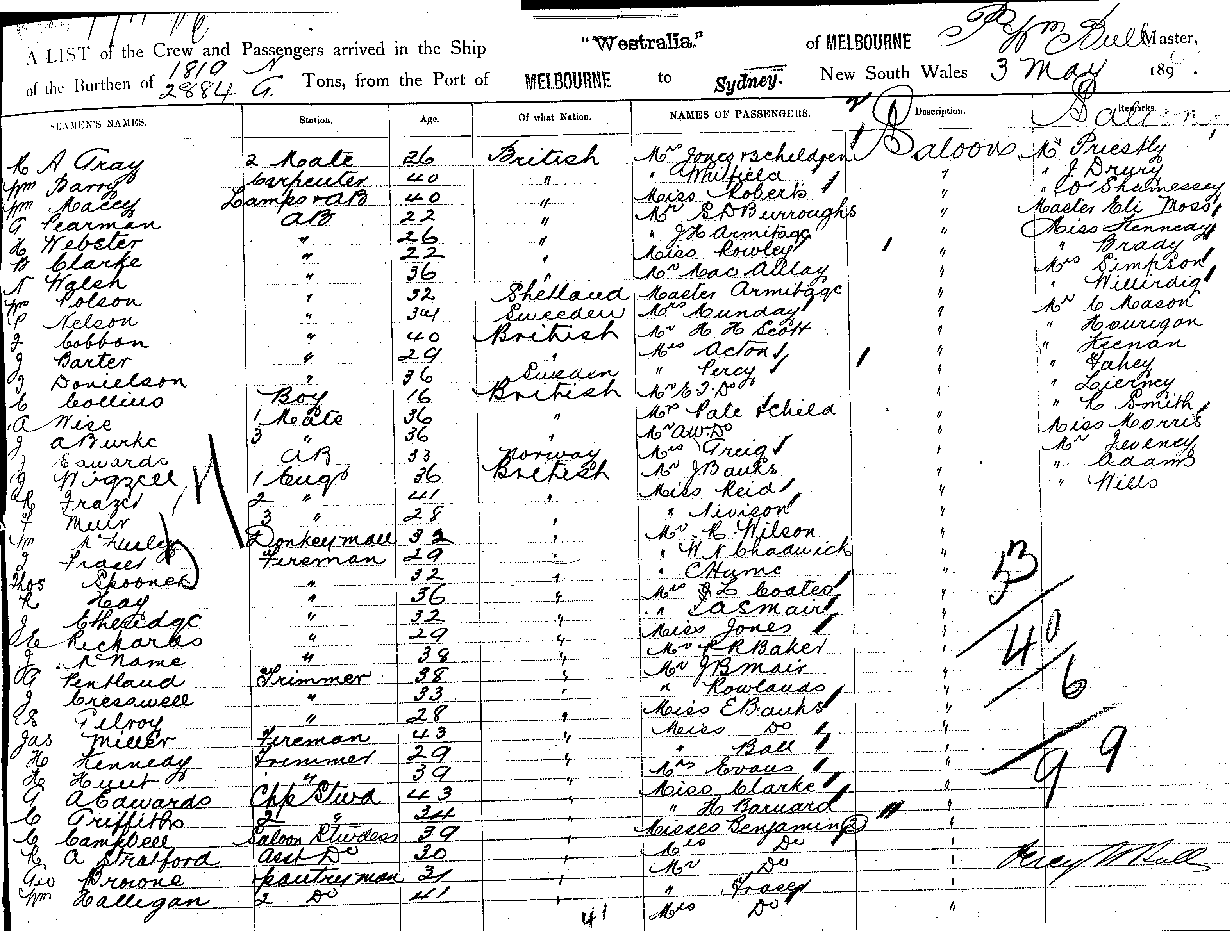 A LIST of the Crew and Passengers arrived in the Ship "Westralia." of MELBOURNE Wm Bull Master,
of the Burthen of 1819 N 2884 G. Tons, from the Port of MELBOURNE to Sydney. New South Wales 3 May 189
SEAMEN'S NAMES. Station. Age. Of what Nation. NAMES OF PASSENGERS. Description. Remarks.
A Gray 2 Mate 26 British Mrs Jones & children Saloon Mr Priestly
Wm Barry Carpenter 40 " " Whitfield " " J Drury
Wm Macey Lamps & AB 40 " Miss Roberts " " O'Shannessey
G Pearman AB 22 " Mr S D Burroughs " Master Eli Moss
H Webster " 26 " " J H Armitage " Miss Kennedy
B Clarke " 22 " Miss Rowley " " Brady
N Walsh " 36 Mr MacAulay " Mrs Simpson
Wm Polson " 32 Shetland Master Armitage " "
P Nelson " 34 Sweeden Mrs Munday " Mr C Mason
J Cobbon " 40 British Mr H H Scott " " Hourigan
J Barter " 29 " Mrs Acton " " Keenan
J Donielson " 36 Sweden " Percy " " Fahey
C Collins Boy 16 British Mr C J Do " " Tierney
A Wise 1 Mate 36 " Mrs Pale & child " " R Smith
J A Burke 3 " 36 " Mr A W Do " Miss Morris
J Edwards AB 33 Norway Mrs Greig " Mr Leveney
J Wigzell 1 Engr 36 British Mr J Banks " " Adams
R Frazer 2 " 41 " Miss Reid " " Wills
F Muir 3 " 28 " " Nivison "
Wm Donkeyman 32 " Mr R Wilson "
J Fraser Fireman 29 " " W N Chadwick "
Thos Spooner " 32 " " C Hume " 53
R Hay " 36 " Mrs J L Coates "
J Cheridge " 32 " " Mair "
E Richards " 29 " Miss Jones " 40
J McName " 38 " Mr R R Baker "
G Pentland Trimmer 38 " Mr J B Mair " 6
J Cresswell " 33 " " Rowlands "
E Gilroy " 28 " Miss E Banks "
Jas Miller Fireman 43 " Miss Do " 99
H Kennedy Trimmer 29 " " Ball "
H Hunt " 39 " Mrs Evans "
G A Edwards Chf Stwd 43 " Miss Clarke "
C Griffiths 2 " 34 " " H Barnard "
C Campbell Saloon Stwdess 39 " Misses Benjamin 2 "
R A Stratford Asst Do 30 " Mrs Do " Percy W Bull
Geo Browne pantryman 31 " Mr Do "
Wm Halligan 2 Do 41 " " Fraser "
41 Mrs Do "